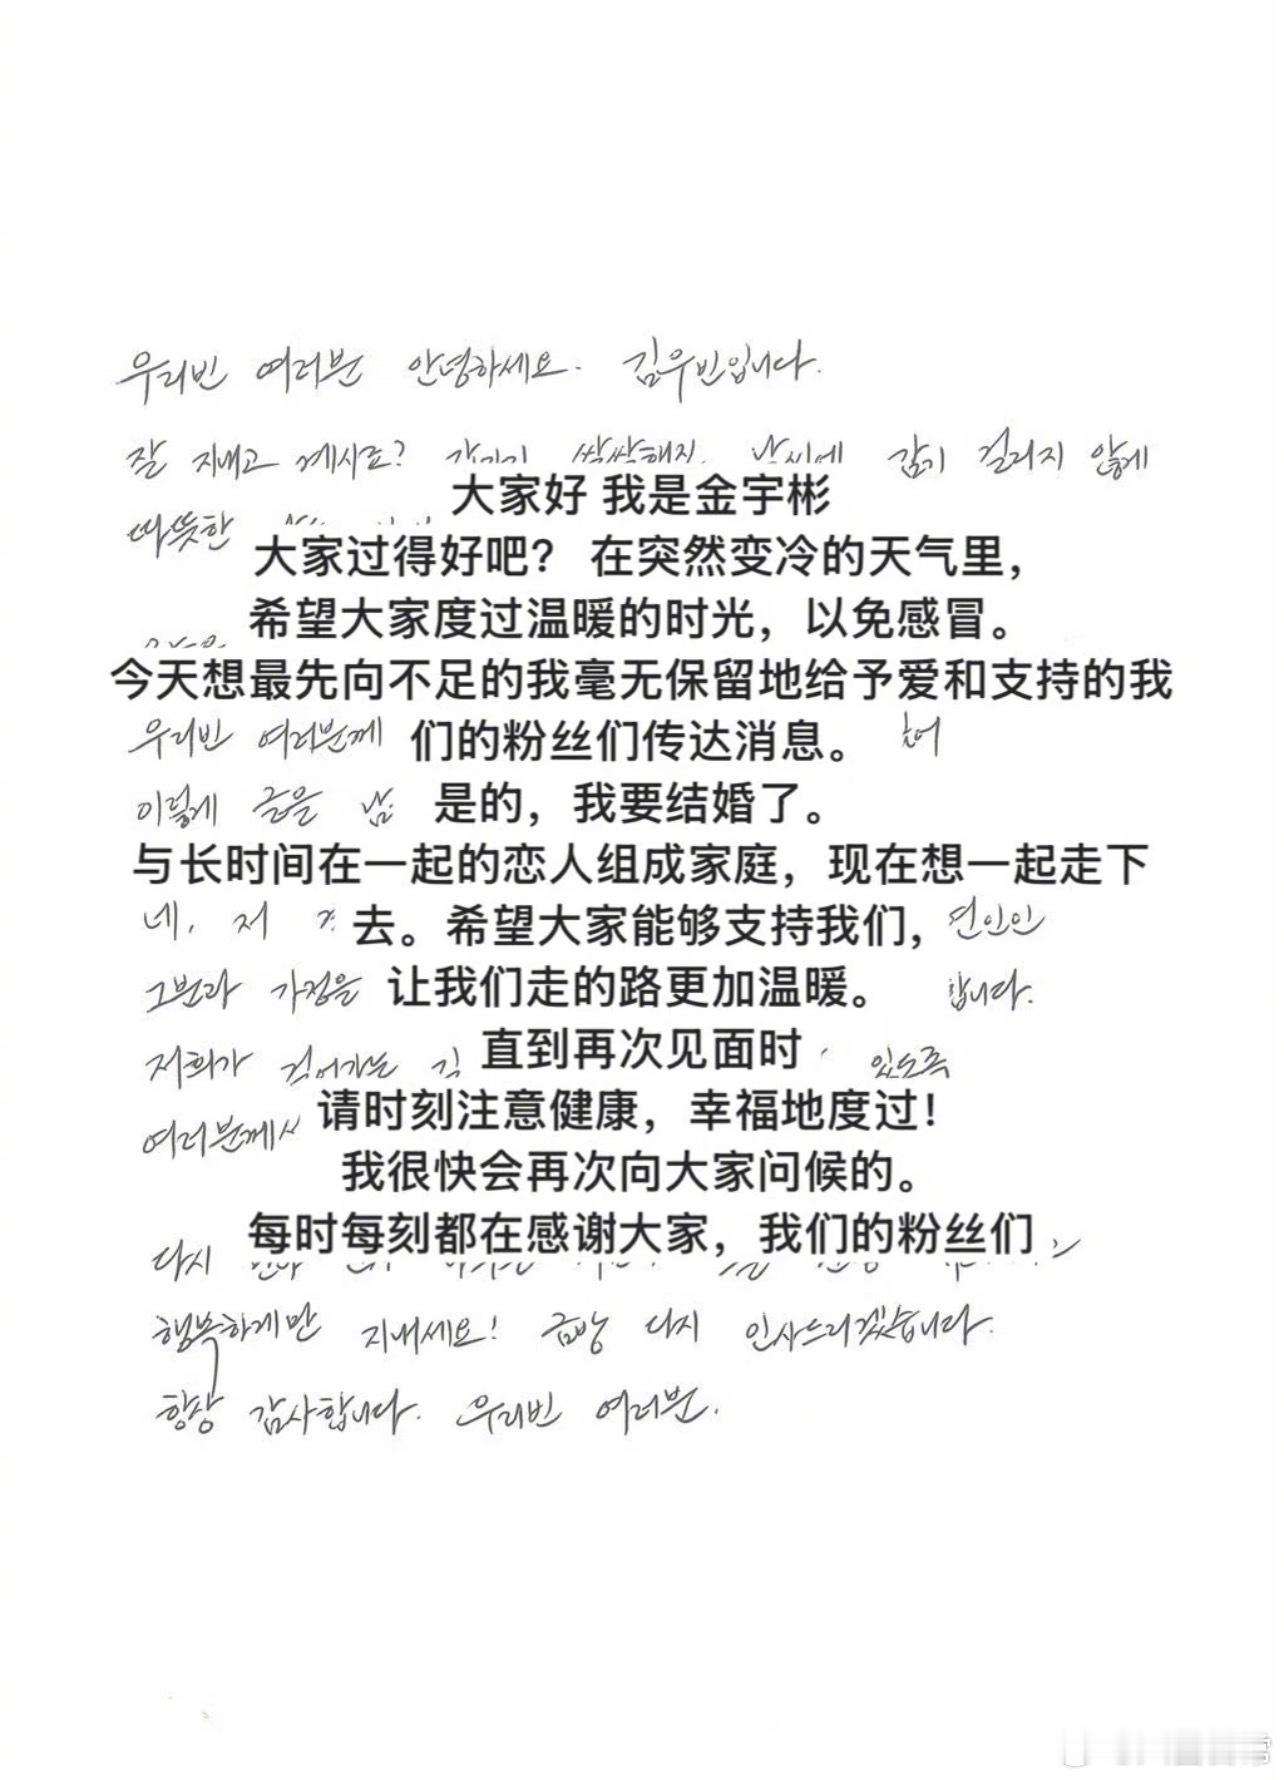 우리빈 여러분 안녕하세요. 김우빈입니다.
잘 지내고 계시죠? 감기 걸리지 않게
大家好 我是金宇彬
따뜻한
大家过得好吧? 在突然变冷的天气里，
希望大家度过温暖的时光，以免感冒。
今天想最先向不足的我毫无保留地给予爱和支持的我
우리빈 여러분께 们的粉丝们传达消息。
이렇게 글을 남 是的，我要结婚了。
与长时间在一起的恋人组成家庭，现在想一起走下
네, 저 去。希望大家能够支持我们， 연인인
그분과 가정을 让我们走的路更加温暖。 합니다.
저희가 걸어가는 直到再次见面时 있도록
여러분께서 请时刻注意健康，幸福地度过！
我很快会再次向大家问候的。
每时每刻都在感谢大家，我们的粉丝们
다시
행복하게만 지내세요! 금방 다시 인사드리겠습니다.
항상 감사합니다. 우리빈 여러분.